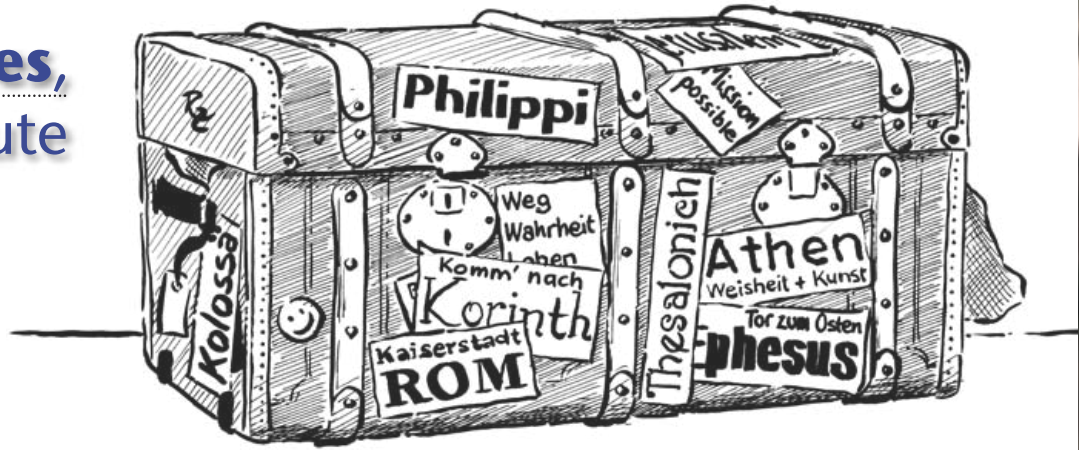 es,
ute
Philippi
Mission
possible
Weg
Wahrheit
Leben
Komm' nach
Korinth
Kaiserstadt
ROM
Thessalonich
Athen
Weisheit + Kunst
Tor zum Osten
phesus
Kolossä